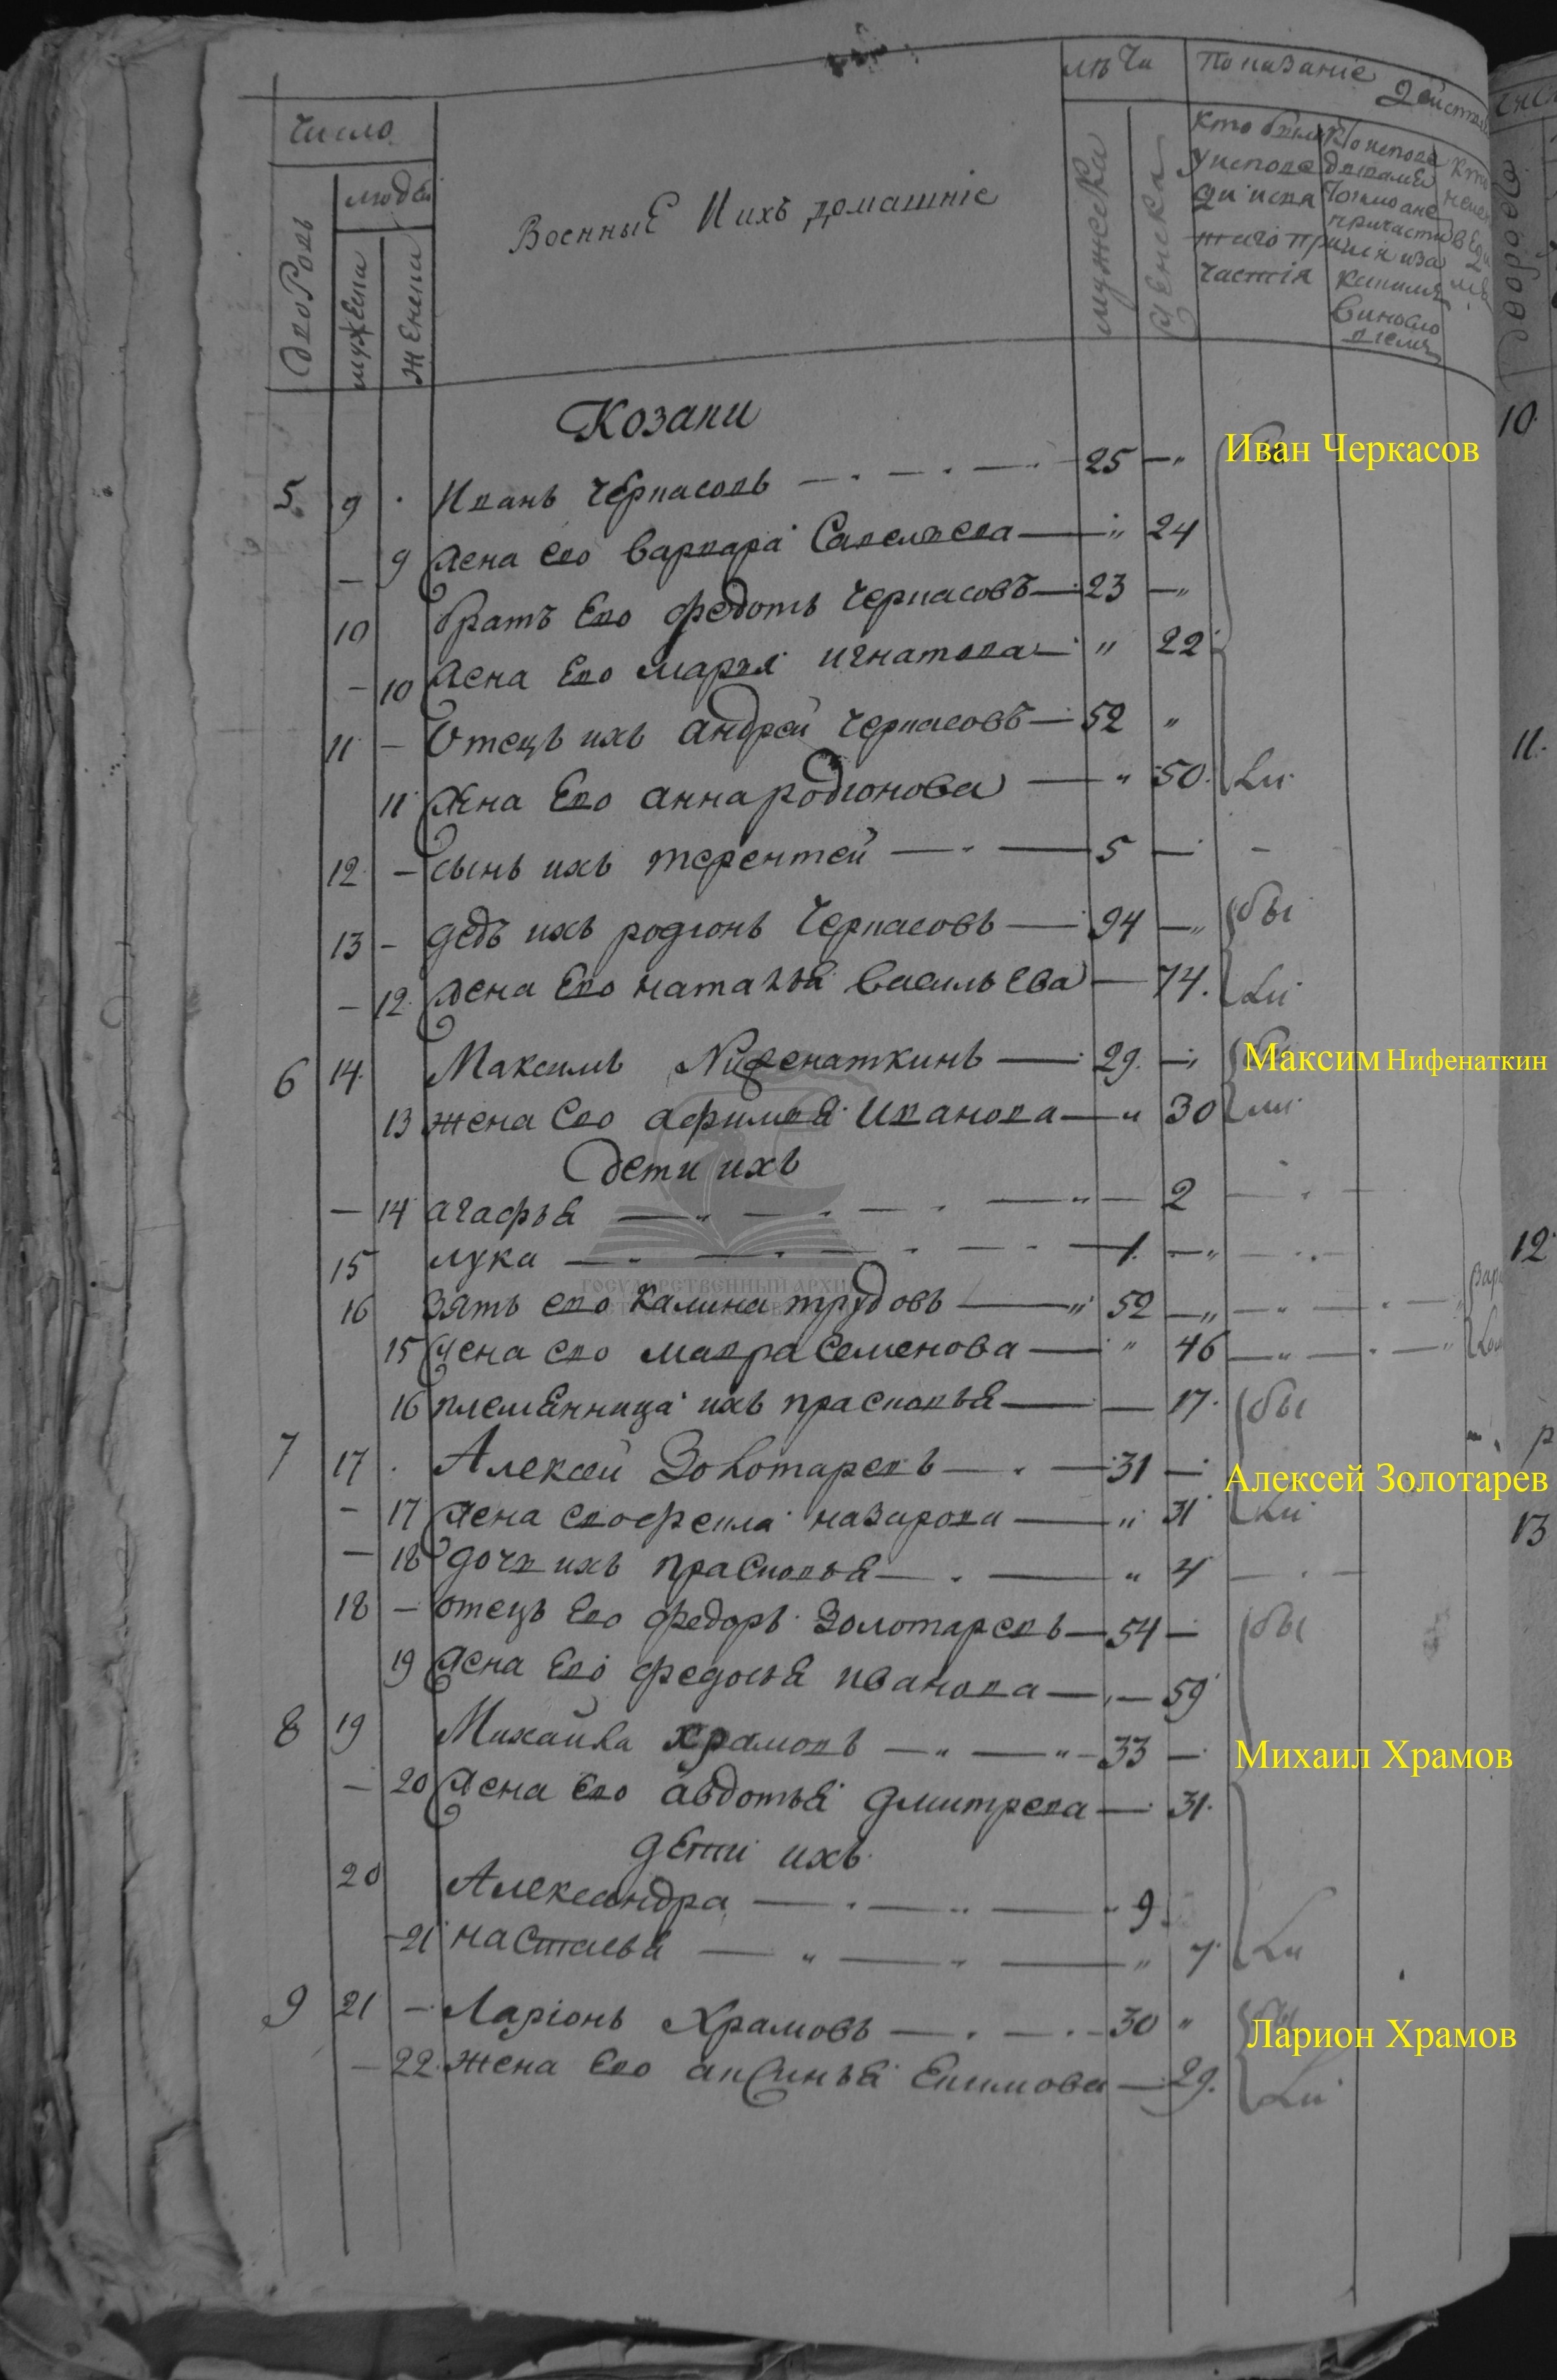 число
лѣта
показаніе действа
дворовъ
людей
мужеска
женска
Военные И ихъ домашніе
мужеска
женска
кто былъ
у исповеди
и свя
таго при
частія
Козаки
5 9 Иванъ Черкасовъ 25
Иван Черкасов
9 жена ево варвара Савельева 24
10 братъ Ево федотъ Черкасовъ 23
10 жена Ево марья игнатова 22
11 Отецъ ихъ андрей Черкасовъ 52
11 жена Ево анна родионова 50 Ли
12 сынъ ихъ терентей 5
13 дедъ ихъ родионъ Черкасовъ 94 бы
12 жена Ево наталья васильева 74 Ли
6 14 Максимъ Нифенаткинъ 29
Максим Нифенаткин
13 жена Ево афимья Иванова 30 ли
дети ихъ
14 агафья 2
15 лука 1
ГОСУДАРСТВЕННЫЙ АРХИ
16 Зять ево Калина трудовъ 52
15 жена ево мавра Семенова 46
16 племянница ихъ прасковья 17 бы
7 17 Алексей Золотаревъ 31
Алексей Золотарев
17 жена ево фекла назарова 31 Ли
18 дочь ихъ прасковья 4
18 отецъ Ево федоръ Золотаревъ 54 бы
19 жена Ево федосья иванова 59
8 19 Михайла храмовъ 33
Михаил Храмов
20 жена Ево авдотья дмитрева 31
дети ихъ
20 Александра 9
21 настасья 7 Ли
9 21 Ларіонъ Храмовъ 30
Ларион Храмов
22 жена Ево аксинья Екимова 29 Ли
10
11
12
13